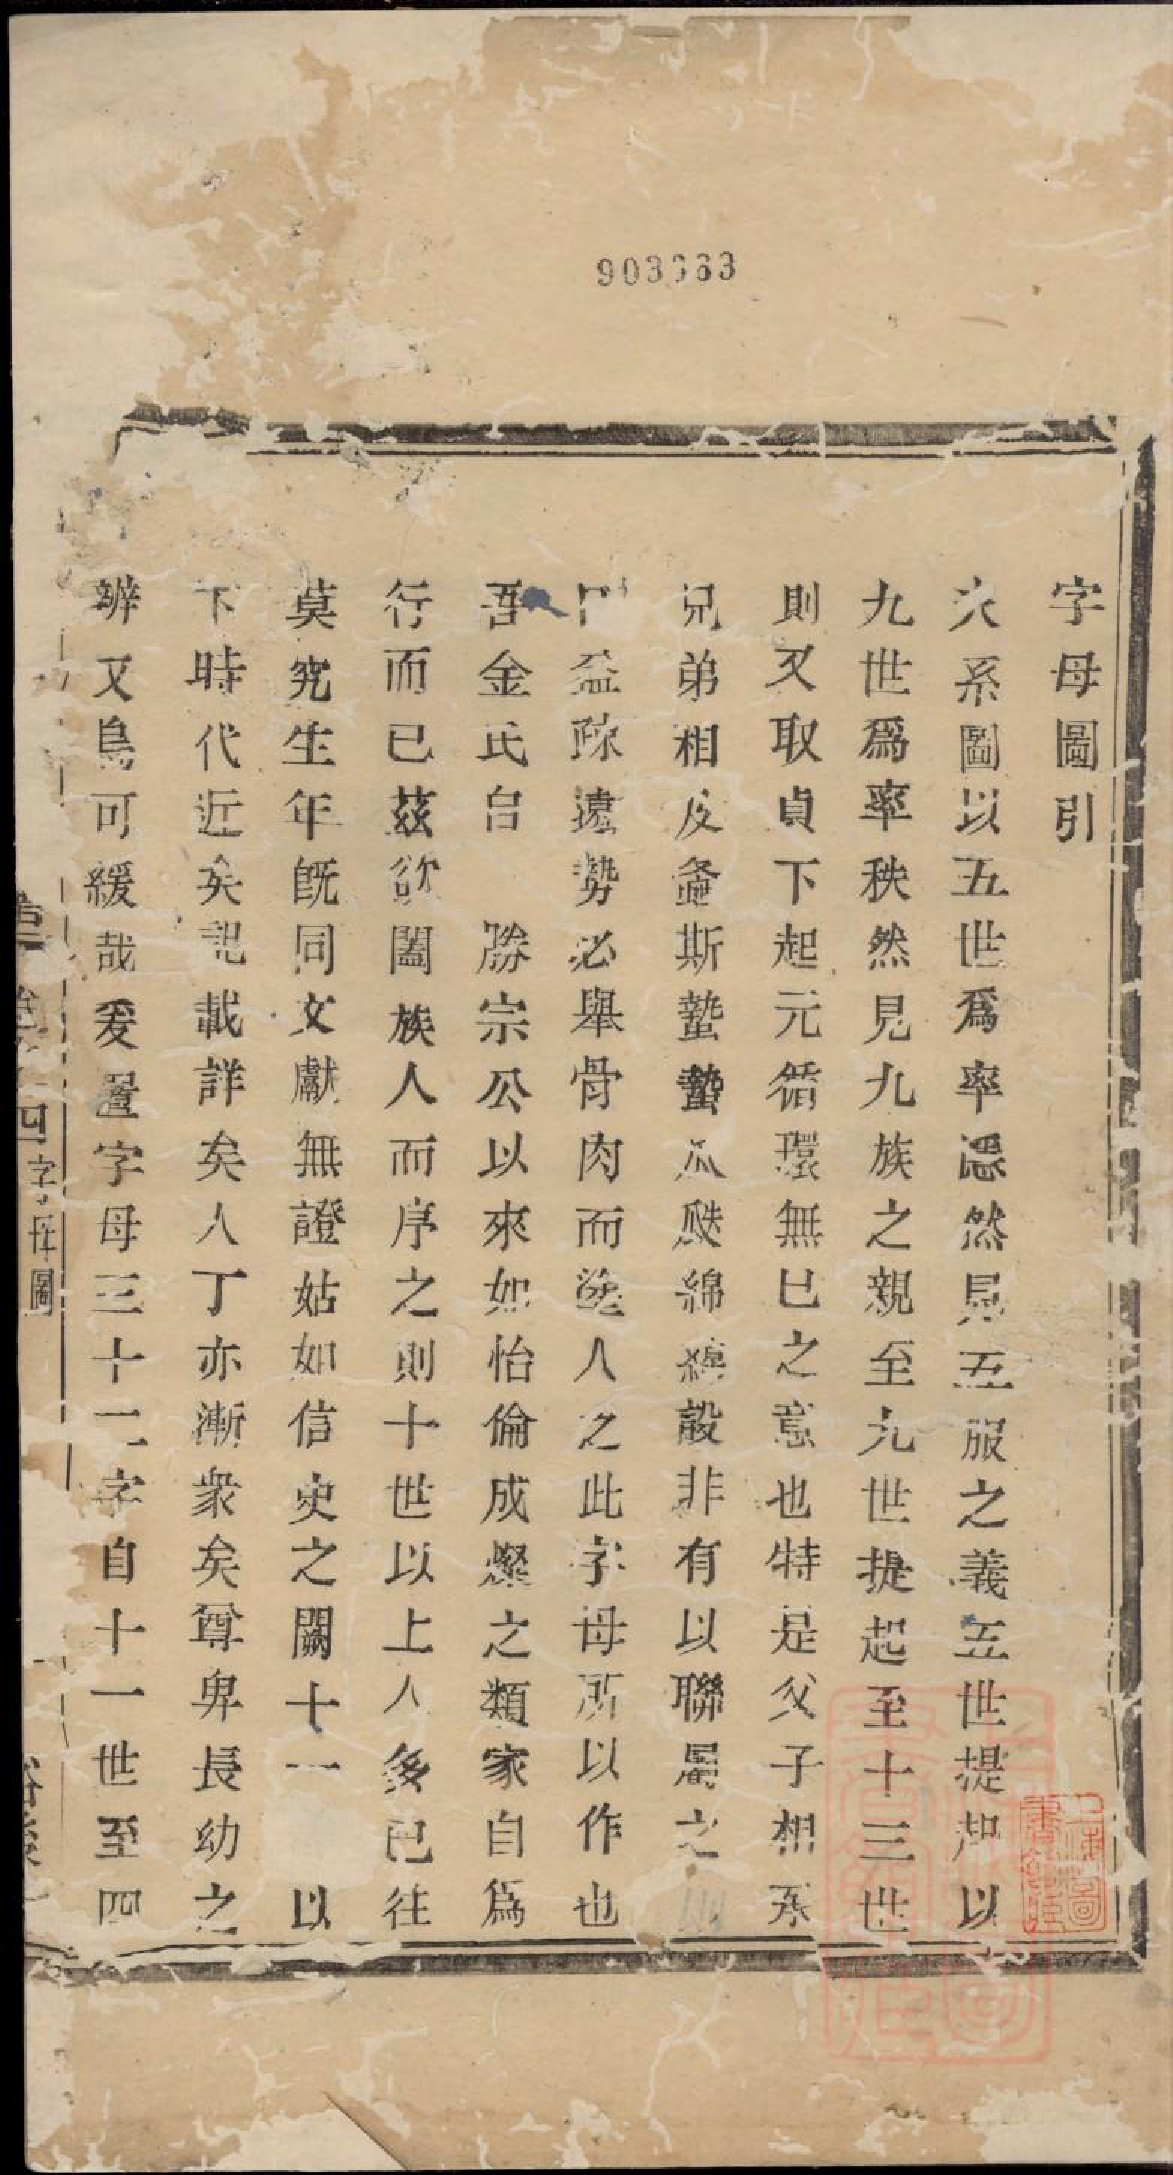 903363
字母圖引
夫系圖以五世爲率慿然見五服之義五世提起以
九世爲率秩然見九族之親至九世提起至十三世
則又取貞下起元循環無已之意也特是父子相承
兄弟相及螽斯蟄蟄瓜瓞綿綿設非有以聯屬之則
日益疎遠勢必舉骨肉而塗人之此字母所以作也
吾金氏自 勝宗公以來如怡倫成燦之類家自爲
行而已茲欲闔族人而序之則十世以上人多已往
莫究生年旣同文獻無證姑如信史之闕十一 以
下時代近矣記載詳矣人丁亦漸衆矣尊卑長幼之
辨又烏可緩哉爰置字母三十二字自十一世至四
四字母圖
裕後